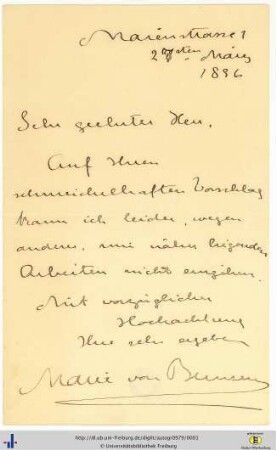 Marienstrasse 1
27sten März
1896
Sehr geehrter Herr,
Auf Ihren
schmeichelhaften Vorschlag
kann ich leider, wegen
anderer, mir näher liegenden
Arbeiten nicht eingehen.
Mit vorzüglicher
Hochachtung
Ihre sehr ergeben
Marie von Bunsen
http://dl.ub.uni-freiburg.de/diglit/autogr0979/0001
© Universitätsbibliothek Freiburg